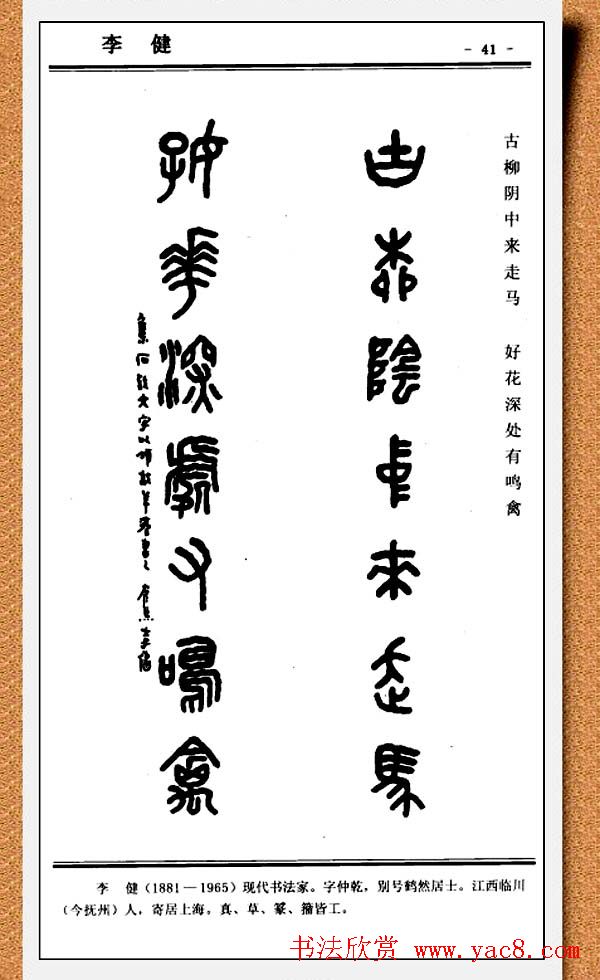 李 健
- 41 -
古柳阴中来走马 好花深处有鸣禽
古柳陰中來走馬
好華深處又鳴禽
集石鼓文字以 書之 李健
李 健(1881—1965)现代书法家。字仲乾,别号鹤然居士。江西临川
(今抚州)人,寄居上海。真、草、篆、籀皆工。
书法欣赏 www.yac8.com